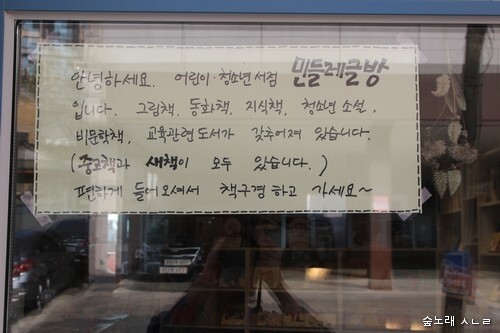 안녕하세요. 어린이·청소년 서점 민들레글방
입니다. 그림책, 동화책, 지식책, 청소년 소설,
비문학책, 교육관련 도서가 갖추어져 있습니다.
(중고책과 새책이 모두 있습니다.)
편하게 들어오셔서 책구경 하고 가세요~
숲노래 ㅅㄴㄹ